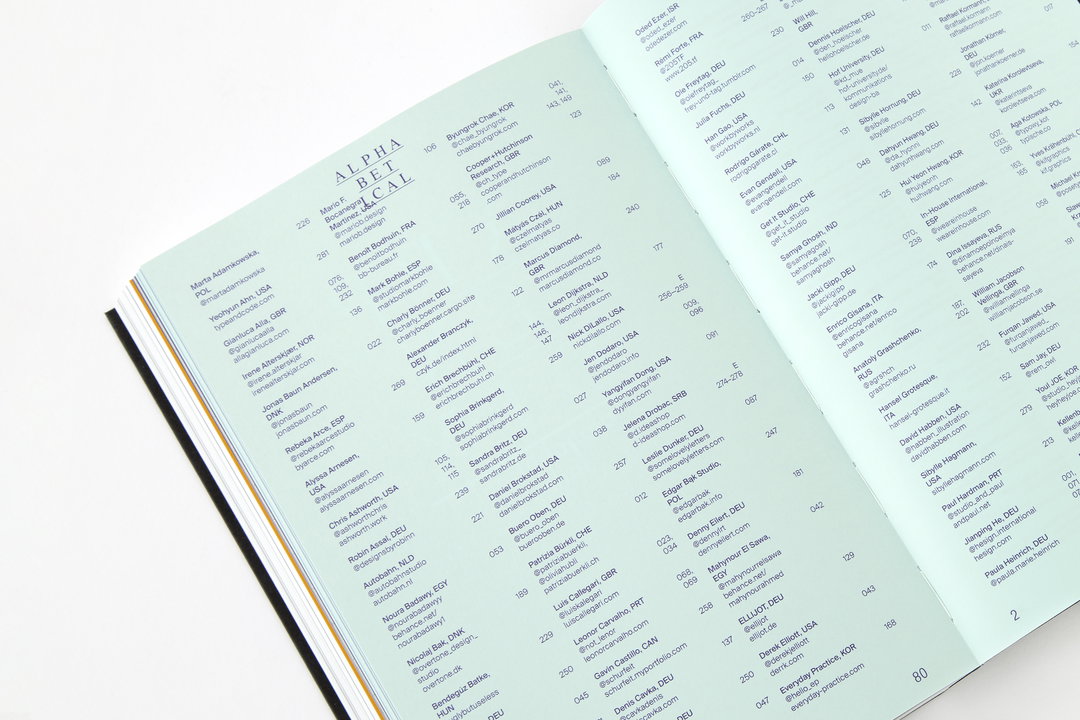 ALPHA
BET
ICAL
Marta Adamkowska,
POL
@martadamkowska
226
Yeohyun Ahn, USA
typeandcode.com
281
Gianluca Alla, GBR
@gianlucaalla
allagianluca.com
078,
109,
232
Irene Alterskjær, NOR
@irene.alterskjar
irenealterskjar.com
136
Jonas Baun Andersen,
DNK
@jonasbaun
jonasbaun.com
022
Rebeka Arce, ESP
@rebekaarcestudio
byarce.com
269
Alyssa Arnesen,
USA
@alyssaarnesen
alyssaarnesen.com
159
Chris Ashworth, USA
@ashworthchris
ashworth.work
105,
114,
115
Robin Assai, DEU
@designsbyrobinn
239
Autobahn, NLD
@autobahnstudio
autobahn.nl
221
Noura Badawy, EGY
@nourabadawyy
behance.net/
nourabadawy1
053
Nicolaj Bak, DNK
@overtone_design_
studio
overtone.dk
189
Bendegúz Batke,
HUN
229
Mario F.
Bocanegra
Martinez,
@mariob.design
mariob.design
106
Benoît Bodhuin, FRA
@benoitbodhuin
bb-bureau.fr
055,
218
Mark Bohle, ESP
@studiomarkbohle
markbohle.com
270
Charly Bonner, DEU
@charly_boenner
charlyboenner.cargo.site
178
Alexander Branczyk,
DEU
czyk.de/index.html
122
Erich Brechbühl, CHE
@erichbrechbuhl
erichbrechbuhl.ch
144,
145,
147
Sophia Brinkgerd,
DEU
@sophiabrinkgerd
sophiabrinkgerd.com
259
Sandra Britz, DEU
@sandrabritz_
sandrabritz.de
027
Daniel Brokstad, USA
@danielbrokstad
danielbrokstad.com
038
Buero Oben, DEU
@buero_oben
buerooben.de
257
Patrizia Bürkli, CHE
@patriziabuerkli,
@oliviahubli
patriziabuerkli.ch
012
Luis Callegari, GBR
@luiskalegari
luiscallegari.com
023,
034
Leonor Carvalho, PRT
@not_lenor
leonorcarvalho.com
068,
069
Gavin Castillo, CAN
@schurfeit
schurfeit.myportfolio.com
250
258
Denis Cavka, DEU
@cavkadenis
045
137
Byungrok Chae, KOR
@chae_byungrok
chaebyungrok.com
041,
141,
143,149
Cooper+Hutchinson
Research, GBR
@ch_type
cooperandhutchinson
.com
123
Jillian Coorey, USA
089
Mátyás Czel, HUN
czelmatyas.co
184
Marcus Diamond,
GBR
@mrmarcusdiamond
marcusdiamond.co
240
Leon Dijkstra, NLD
@leon_dijkstra_
leondijkstra.com
177
Nick DiLallo, USA
nickdilallo.com
E
256-259
Jen Dodaro, USA
@jendodaro
jendodaro.info
009,
096
Yangyifan Dong, USA
@dongyangyifan
dyyifan.com
091
Jelena Drobac, SRB
@d.ideashop
d-ideashop.com
E
274-278
Leslie Dunker, DEU
@somelovelyletters
somelovelyletters.com
087
Edgar Bąk Studio,
POL
@edgarbak
edgarbak.info
247
Denny Eilert, DEU
@dennylrt
dennyeilert.com
181
Mahynour El Sawa,
EGY
@mahynourrelsawa
behance.net/
mahynourahmed
042
ELLIJOT, DEU
@ellijot
ellijot.de
129
Derek Elliott, USA
@derekjelliott
derrk.com
043
250
Everyday Practice, KOR
@hello_ep
everyday-practice.com
168
047
80
Oded Ezer, ISR
@oded_ezer
odedezer.com
260-267
Rémi Forte, FRA
@205TF
www.205.tf
230
Ole Freytag, DEU
@olefreytag_
frey-und-tag.tumblr.com
014
Julia Fuchs, DEU
150
Han Gao, USA
@workbyworks
workbyworks.nl
113
Rodrigo Gárate, CHL
rodrigogarate.cl
131
Evan Gendell, USA
@evangendell
evangendell.com
048
Get It Studio, CHE
@get_it_studio
get-it.studio
125
Samya Ghosh, IND
@samyagosh
behance.net/
samraghosh
070,
238
Jacki Gipp, DEU
@jackigipp
jacki-gipp.de
174
Enrico Gisana, ITA
@enricogisana
behance.net/enrico
gisana
187,
202
Anatoly Grashchenko,
RUS
@agrshch
grashchenko.ru
232
Hansel Grotesque,
ITA
hansel-grotesque.it
152
David Habben, USA
@habben_illustration
davidhabben.com
279
Sibylle Hagmann,
USA
sibyllehagmann.com
213
Paul Hardman, PRT
@studio_and_paul
andpaul.net
Jianping He, DEU
@hesign.international
hesign.com
Paula Heinrich, DEU
@paula.marie.heinrich
2
Will Hill,
GBR
Dennis Hoelscher, DEU
@den_hoelscher
hellohoelscher.de
011
Hof University, DEU
@kd_mue
hof-university.de/
kommunikations
design-ba
228
Sibylle Hornung, DEU
@sibylle
sibyllehornung.com
142
Dahyun Hwang, DEU
@da_hyonni
dahyunhwang.com
007,
033,
036
Hui Yeon Hwang, KOR
@huiyeonh
huhwang.com
163,
165
In-House International,
ESP
@weareinhouse
weareinhouse.com
058
Dina Issayeva, RUS
@dinamoepoiroeimja
behance.net/dinais-
sayeva
191
William Jacobson
Vellinga, GBR
@williamvellinga
williamjacobson.se
Furqan Jawed, USA
@furqan.jawed_
furqanjawed.com
Sam Jay, DEU
@rem_owl
Youl JOE, KOR
@heyheyjoe
Raffael Kormann,
@raffael.kormann
raffaelkormann.com
Jonathan Körner,
DEU
@jon.koerner
jonathankoerner.de
154
Katerina Korolevtseva,
UKR
@katerintseva
korolevtseva.com
Aga Kotowska, POL
@typowy_kot
typische.co
@kifgraphics
kif.graphics